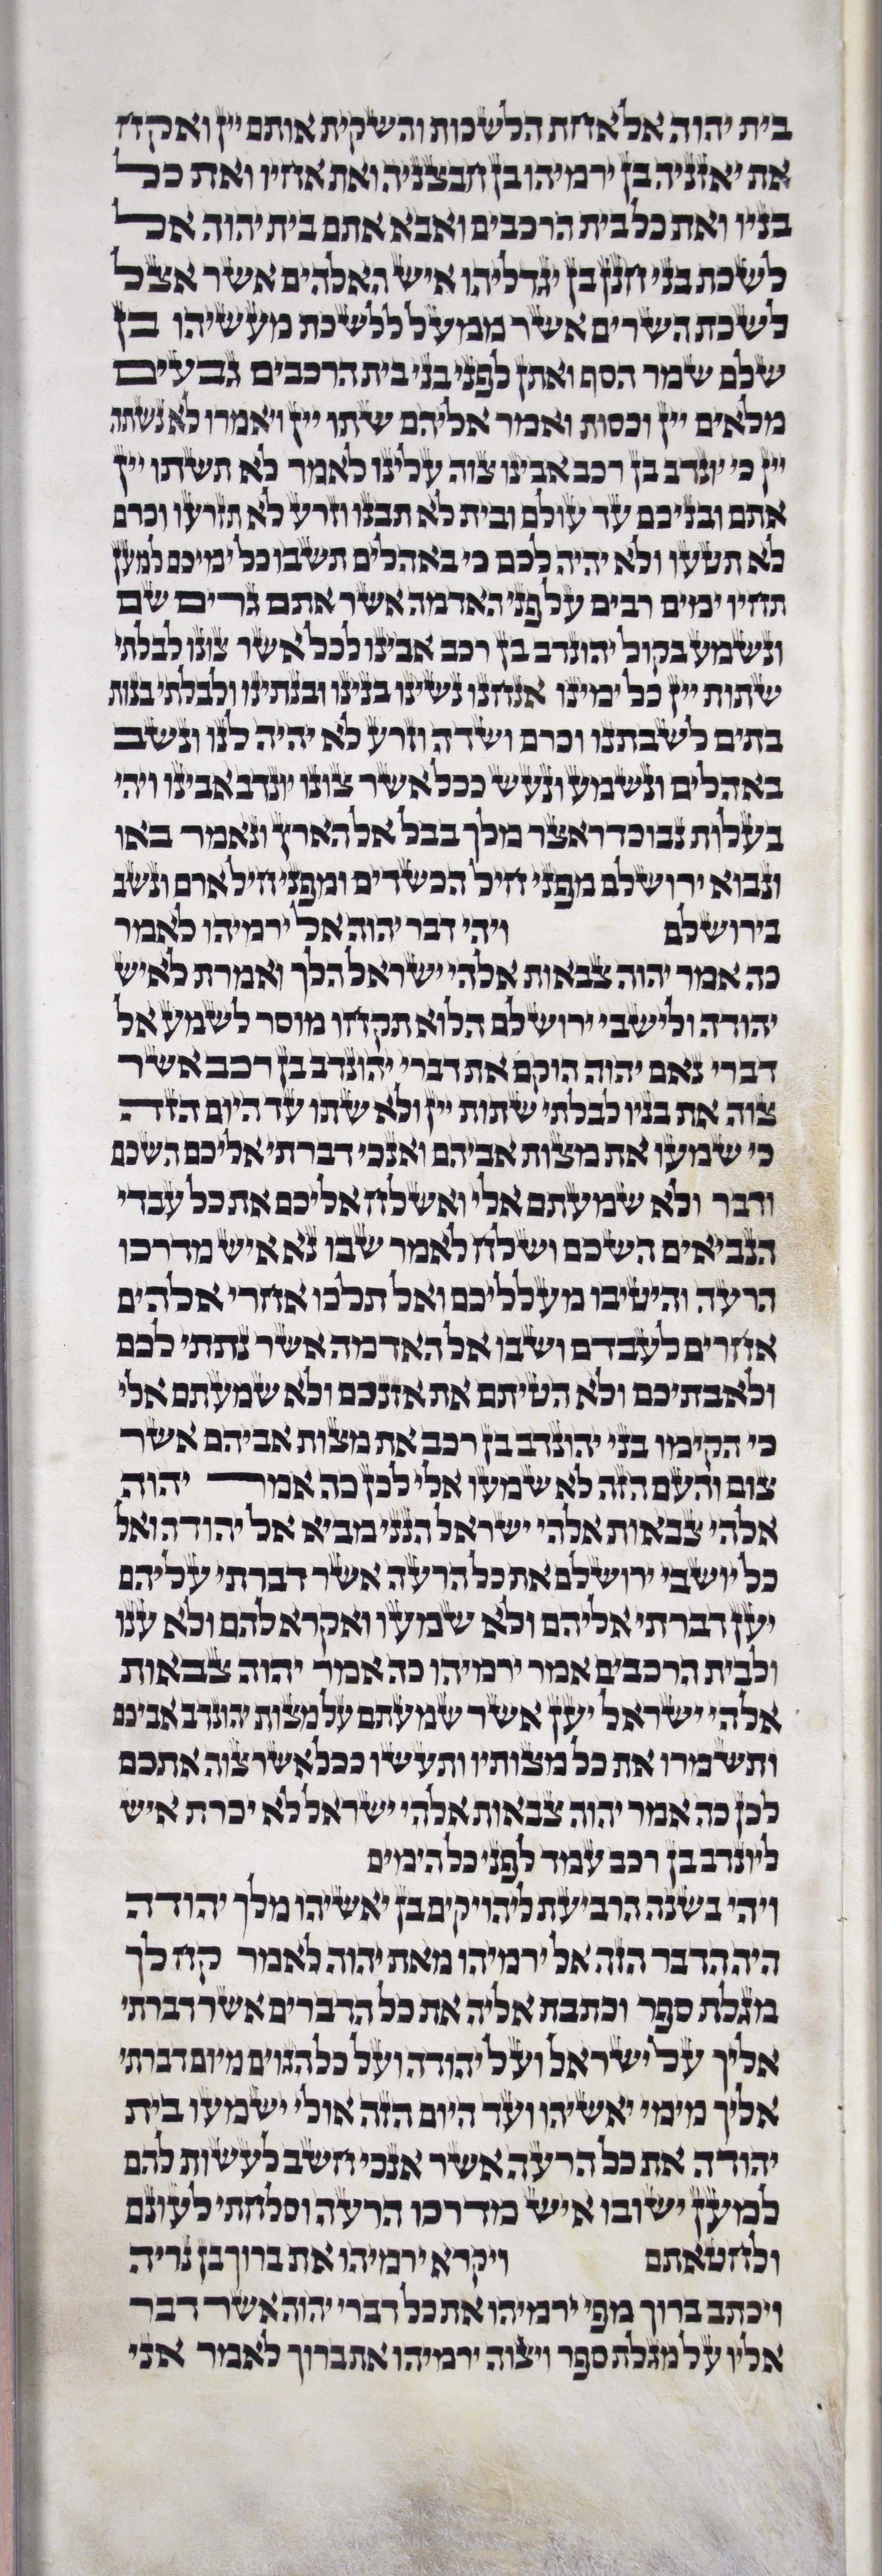 בית יהוה אל אחת הלשכות והשקית אותם יין ואקח
את יאזניה בן ירמיהו בן חבצניה ואת אחיו ואת כל
בניו ואת כל בית הרכבים ואבא אתם בית יהוה אל
לשכת בני חנן בן יגדליהו איש האלהים אשר אצל
לשכת השרים אשר ממעל ללשכת מעשיהו בן
שלם שמר הסף ואתן לפני בני בית הרכבים גבעים
מלאים יין וכסות ואמר אליהם שתו יין ויאמרו לא נשתה
יין כי יונדב בן רכב אבינו צוה עלינו לאמר לא תשתו יין
אתם ובניכם עד עולם ובית לא תבנו וזרע לא תזרעו וכרם
לא תטעו ולא יהיה לכם כי באהלים תשבו כל ימיכם למען
תחיו ימים רבים על פני האדמה אשר אתם גרים שם
ונשמע בקול יהונדב בן רכב אבינו לכל אשר צונו לבלתי
שתות יין כל ימינו אנחנו נשינו בנינו ובנתינו ולבלתי בנות
בתים לשבתנו וכרם ושדה וזרע לא יהיה לנו ונשב
באהלים ונשמע ונעש ככל אשר צונו יונדב אבינו ויהי
בעלות נבוכדראצר מלך בבל אל הארץ ונאמר באו
ונבוא ירושלם מפני חיל הכשדים ומפני חיל ארם ונשב
בירושלם ויהי דבר יהוה אל ירמיהו לאמר
כה אמר יהוה צבאות אלהי ישראל הלך ואמרת לאיש
יהודה ולישבי ירושלם הלוא תקחו מוסר לשמע אל
דברי נאם יהוה הוקם את דברי יהונדב בן רכב אשר
צוה את בניו לבלתי שתות יין ולא שתו עד היום הזה
כי שמעו את מצות אביהם ואנכי דברתי אליכם השכם
ודבר ולא שמעתם אלי ואשלח אליכם את כל עבדי
הנביאים השכם ושלח לאמר שבו נא איש מדרכו
הרעה והיטיבו מעלליכם ואל תלכו אחרי אלהים
אחרים לעבדם ושבו אל האדמה אשר נתתי לכם
ולאבתיכם ולא הטיתם את אזנכם ולא שמעתם אלי
כי הקימו בני יהונדב בן רכב את מצות אביהם אשר
צום והעם הזה לא שמעו אלי לכן כה אמר יהוה
אלהי צבאות אלהי ישראל הנני מביא אל יהודה ואל
כל יושבי ירושלם את כל הרעה אשר דברתי עליהם
יען דברתי אליהם ולא שמעו ואקרא להם ולא ענו
ולבית הרכבים אמר ירמיהו כה אמר יהוה צבאות
אלהי ישראל יען אשר שמעתם על מצות יהונדב אביכם
ותשמרו את כל מצותיו ותעשו ככל אשר צוה אתכם
לכן כה אמר יהוה צבאות אלהי ישראל לא יכרת איש
ליונדב בן רכב עמד לפני כל הימים
ויהי בשנה הרביעת ליהויקים בן יאשיהו מלך יהודה
היה הדבר הזה אל ירמיהו מאת יהוה לאמר קח לך
מגלת ספר וכתבת אליה את כל הדברים אשר דברתי
אליך על ישראל ועל יהודה ועל כל הגוים מיום דברתי
אליך מימי יאשיהו ועד היום הזה אולי ישמעו בית
יהודה את כל הרעה אשר אנכי חשב לעשות להם
למען ישובו איש מדרכו הרעה וסלחתי לעונם
ולחטאתם ויקרא ירמיהו את ברוך בן נריה
ויכתב ברוך מפי ירמיהו את כל דברי יהוה אשר דבר
אליו על מגלת ספר ויצוה ירמיהו את ברוך לאמר אני